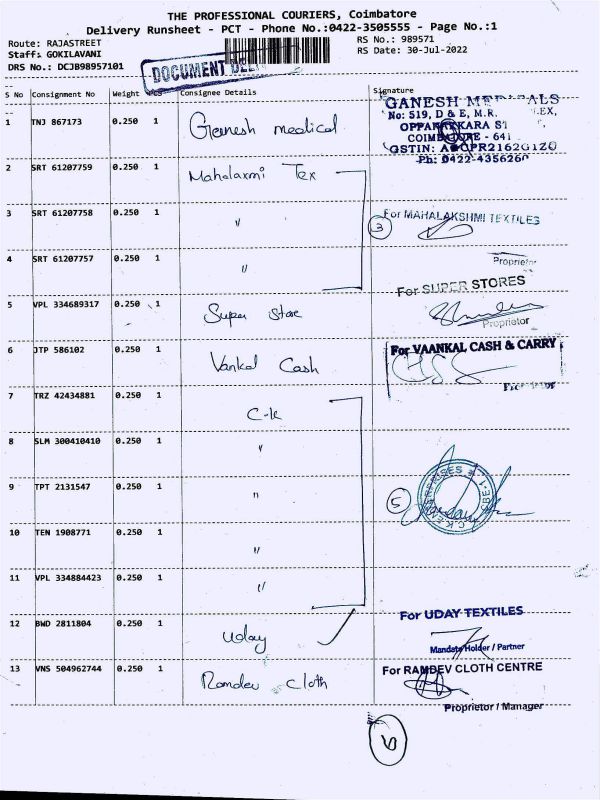 THE PROFESSIONAL COURIERS, Coimbatore
Delivery Runsheet - PCT - Phone No.:0422-3505555 - Page No.:1
Route: RAJASTREET
RS No.: 989571
Staff: GOKILAVANI
RS Date: 30-Jul-2022
DRS No.: DCJB98957101
DOCUMENT
S No Consignment No Weight PCS Consignee Details Signature
1 TNJ 867173 0.250 1 Ganesh medical
GANESH
No: 519, D & E, M.R.
COIMBATORE - 641
Ph: 0422-4356260
2 SRT 61207759 0.250 1 Mahalaxmi Tex
3 SRT 61207758 0.250 1 〃 3 For MAHALAKSHMI TEXTILES
4 SRT 61207757 0.250 1 〃 Proprietor
For SUPER STORES
5 VPL 334689317 0.250 1 Super Store
Proprietor
6 JTP 586102 0.250 1 Vankal Cash
For VAANKAL CASH & CARRY
7 TRZ 42434881 0.250 1 C-K
8 SLM 300410410 0.250 1 〃
9 TPT 2131547 0.250 1 〃 5
C.K. ENTERPRISES
10 TEN 1908771 0.250 1 〃
11 VPL 334884423 0.250 1 〃
12 BWD 2811804 0.250 1 Uday
For UDAY TEXTILES
Mandate Holder / Partner
13 VNS 504962744 0.250 1 Ramdev Cloth
For RAMDEV CLOTH CENTRE
Proprietor / Manager